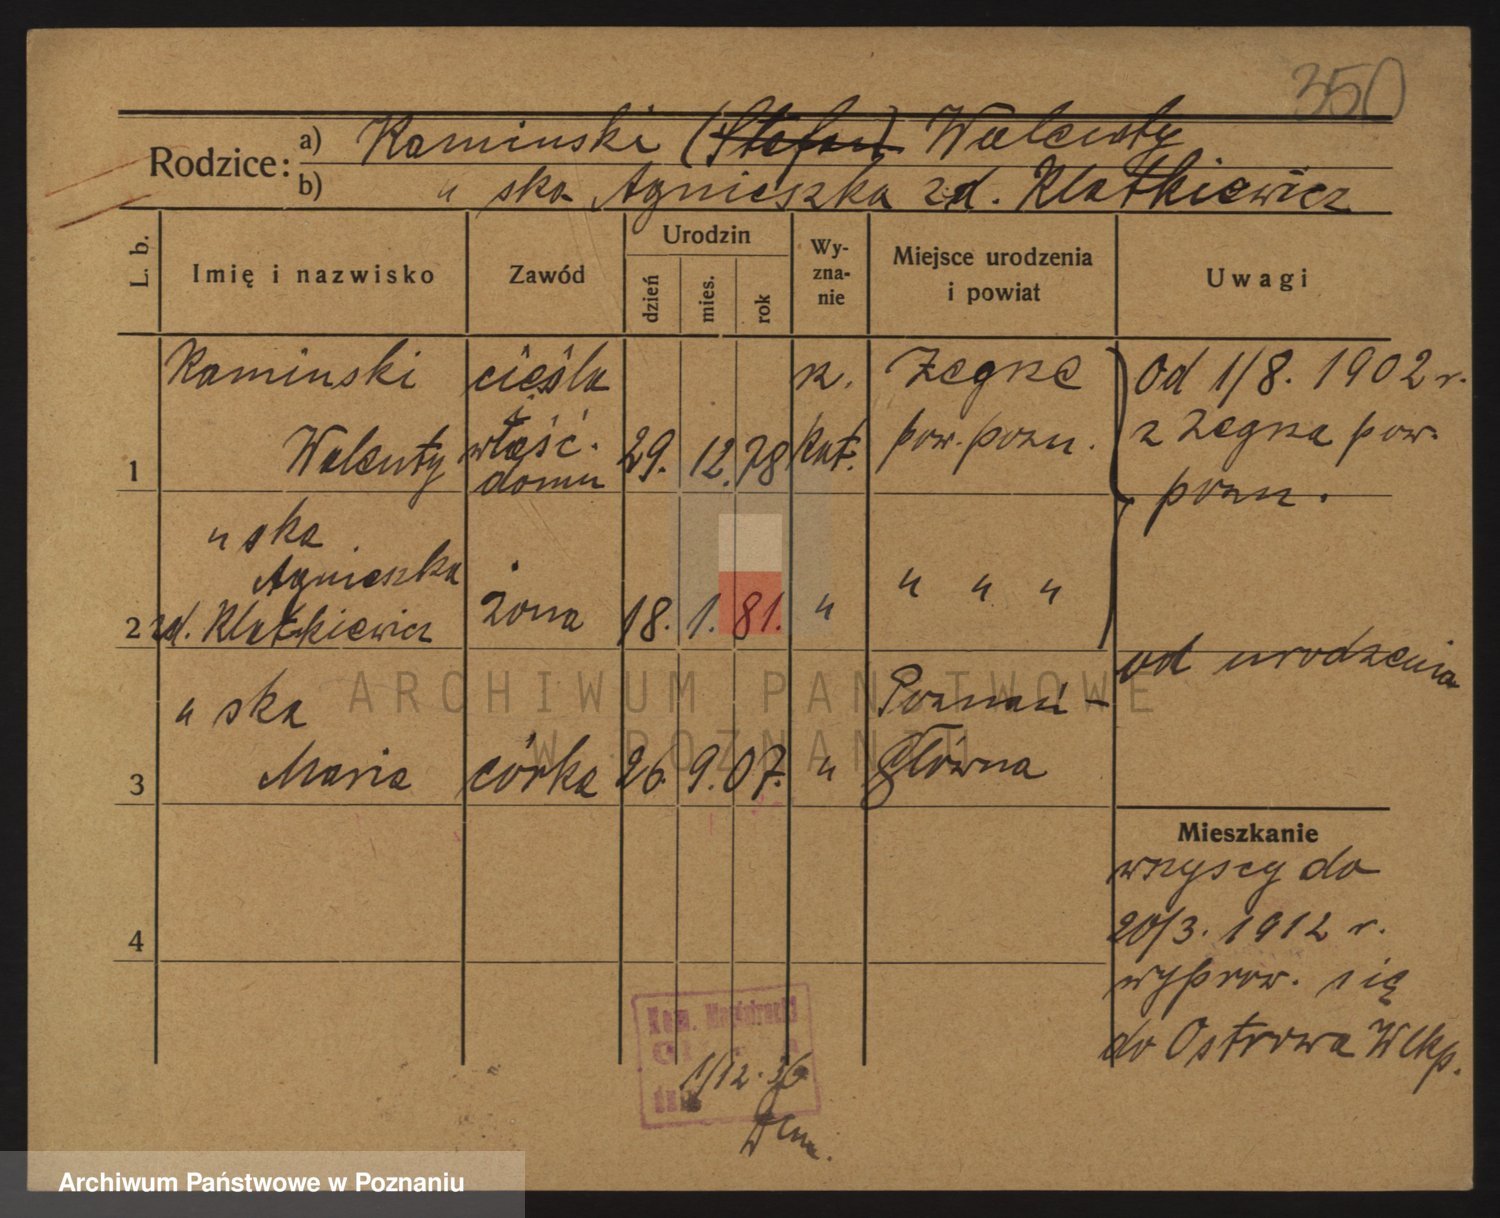 350
Rodzice: a) Kaminski (Stefan) Walenty
b) " ska Agnieszka zd. Klatkiewicz
L. b. Imię i nazwisko Zawód Urodzin dzień mies. rok Wy-zna-nie Miejsce urodzenia i powiat Uwagi
Kaminski cieśla r. Żegrze Od 1/8. 1902 r.
1 Walenty właść. domu 29. 12. 78 kat. pow. pozn. z Żegrza pow.
pozn.
" ska
Agnieszka
2 zd. Klatkiewicz żona 18. 1. 81. " " " "
od urodzenia
" ska Poznań -
3 Maria córka 26. 9. 07. " Główna
Mieszkanie
wszyscy do
4 20/3. 1912 r.
wyprow. się
do Ostrowa Wlkp.
1/12. 36
ARCHIWUM PAŃSTWOWE
W POZNANIU
Archiwum Państwowe w Poznaniu